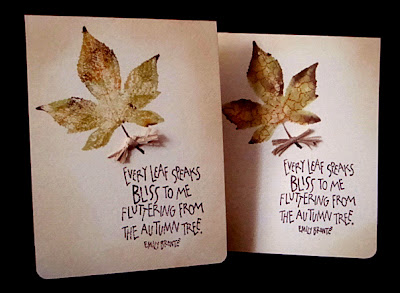 EVERY LEAF SPEAKS
BLISS TO ME
FLUTTERING FROM
THE AUTUMN TREE.
EMILY BRONTË
EVERY LEAF SPEAKS
BLISS TO ME
FLUTTERING FROM
THE AUTUMN TREE.
EMILY BRONTË